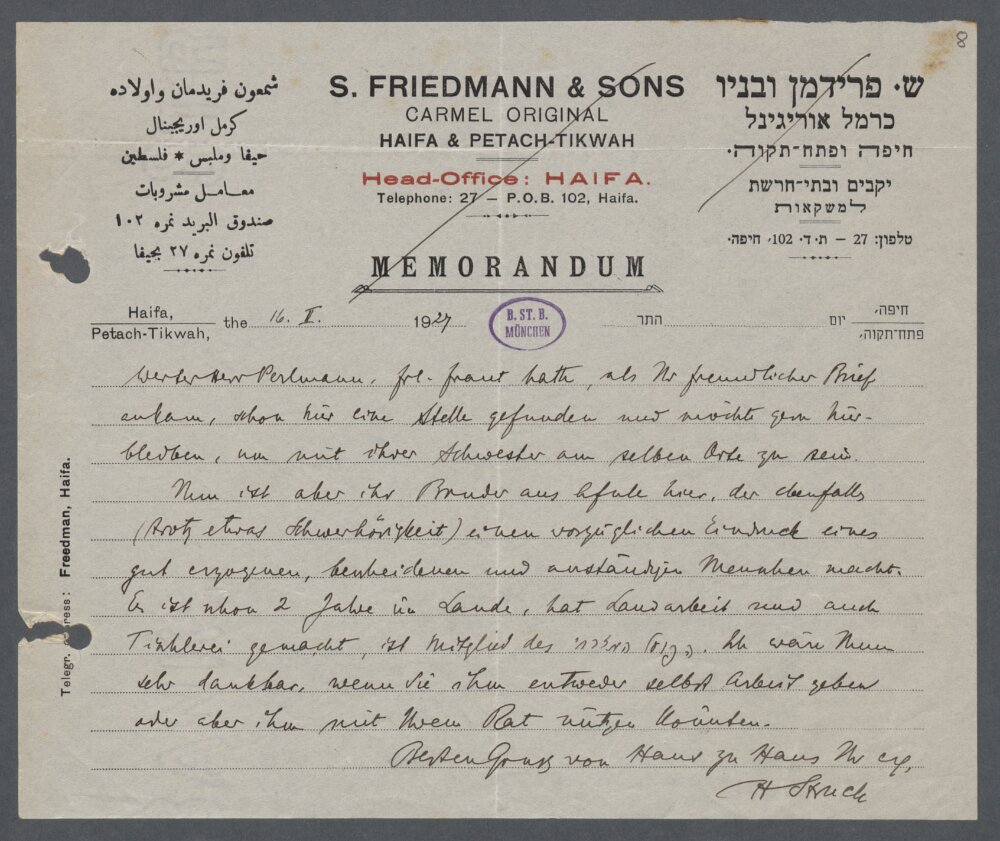 8
شمعون فريدمان واولاده
كرمل اوريجينال
حيفا وملبس * فلسطين
معامل مشروبات
صندوق البريد نمره ١٠٢
تلفون نمره ٢٧ بحيفا
S. FRIEDMANN & SONS
CARMEL ORIGINAL
HAIFA & PETACH-TIKWAH
Head-Office: HAIFA.
Telephone: 27 — P.O.B. 102, Haifa.
ש. פרידמן ובניו
כרמל אוריגינל
חיפה ופתח-תקוה.
יקבים ובתי-חרשת
למשקאות
טלפון: 27 — ת. ד. 102, חיפה.
MEMORANDUM
Haifa,
Petach-Tikwah, the 16. II. 1927
B. ST. B.
MÜNCHEN
חיפה,
פתח-תקוה, יום התר
Werter Herr Perlmann, Frl. hatte, als Ihr freundlicher Brief
ankam, schon hier eine Stelle gefunden und möchte gern hier-
bleiben, um mit ihrer Schwester am selben Orte zu sein.
Nun ist aber ihr Bruder aus Afule hier, der ebenfalls
(trotz etwas Schwerhörigkeit) einen vorzüglichen Eindruck eines
gut erzogenen, bescheidenen und anständigen Menschen macht.
Er ist schon 2 Jahre im Lande, hat Landarbeit und auch
Tischlerei gemacht, ist Mitglied des הפועל המזרחי. Ich wäre Ihnen
sehr dankbar, wenn Sie ihm entweder selbst Arbeit geben
oder aber ihm mit Ihrem Rat nützen könnten.
Besten Gruss von Haus zu Haus Ihr erg.
H Struck
Telegr. Address: Freedman, Haifa.